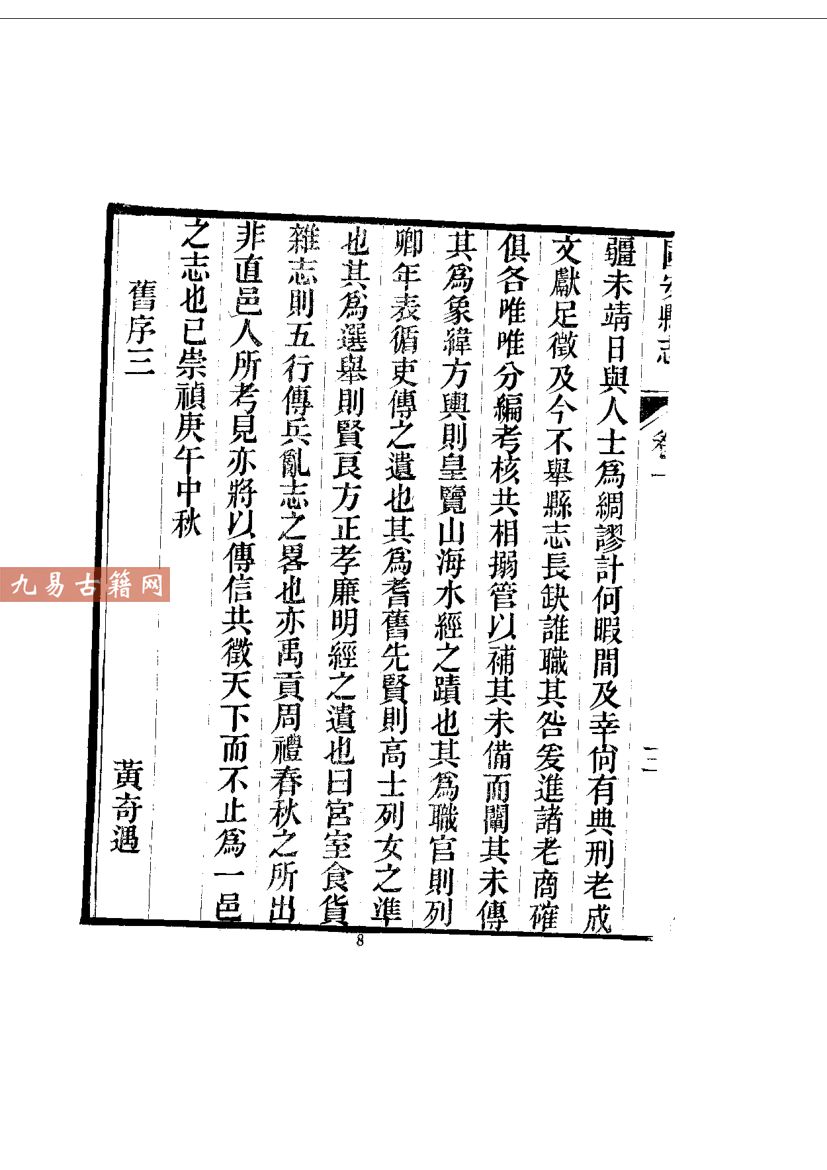 固安縣志
卷一
三
疆未靖日與人士爲綢謬計何暇間及幸尙有典刑老成
文獻足徵及今不舉縣志長缺誰職其咎爰進諸老商確
俱各唯唯分編考核共相搦管以補其未備而闡其未傳
其爲象緯方輿則皇覽山海水經之蹟也其爲職官則列
卿年表循吏傳之遺也其爲耆舊先賢則高士列女之準
也其爲選舉則賢良方正孝廉明經之遺也曰宮室食貨
雜志則五行傳兵亂志之畧也亦禹貢周禮春秋之所出
非直邑人所考見亦將以傳信共徵天下而不止爲一邑
之志也已崇禎庚午中秋
舊序三
黃奇遇
8
九易古籍网